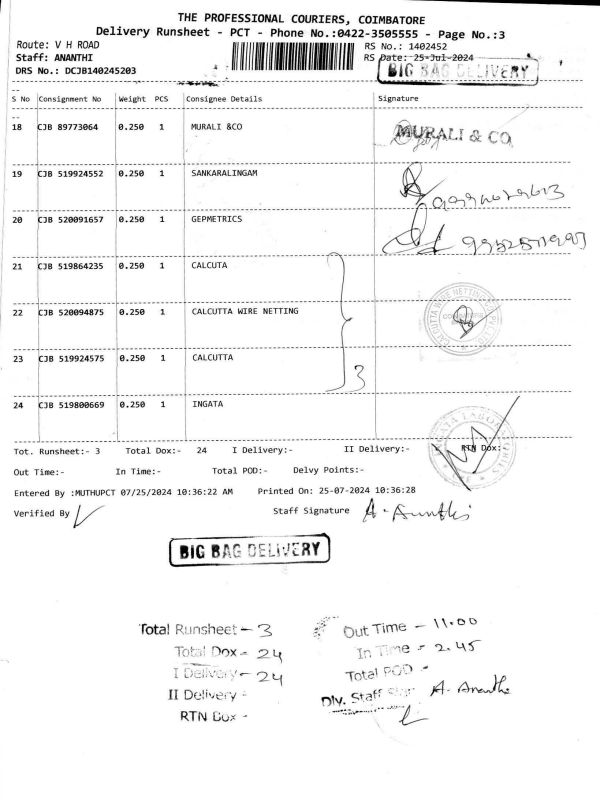 THE PROFESSIONAL COURIERS, COIMBATORE
Delivery Runsheet - PCT - Phone No.:0422-3505555 - Page No.:3
Route: V H ROAD
RS No.: 1402452
Staff: ANANTHI
RS Date: 25-Jul-2024
DRS No.: DCJB140245203
BIG BAG DELIVERY
S No Consignment No Weight PCS Consignee Details Signature
18 CJB 89773064 0.250 1 MURALI &CO MURALI & CO
19 CJB 519924552 0.250 1 SANKARALINGAM
20 CJB 520091657 0.250 1 GEPMETRICS
21 CJB 519864235 0.250 1 CALCUTA
22 CJB 520094875 0.250 1 CALCUTTA WIRE NETTING
23 CJB 519924575 0.250 1 CALCUTTA
3
24 CJB 519800669 0.250 1 INGATA
Tot. Runsheet:- 3 Total Dox:- 24 I Delivery:- II Delivery:- RTN Dox:-
Out Time:- In Time:- Total POD:- Delvy Points:-
Entered By :MUTHUPCT 07/25/2024 10:36:22 AM Printed On: 25-07-2024 10:36:28
Verified By Staff Signature A. Ananthi
BIG BAG DELIVERY
Total Runsheet - 3 Out Time - 11.00
Total Dox - 24 In Time - 2.45
I Delivery - 24 Total POD -
II Delivery - Dlv. Staff Sign A. Ananthi
RTN Dox -